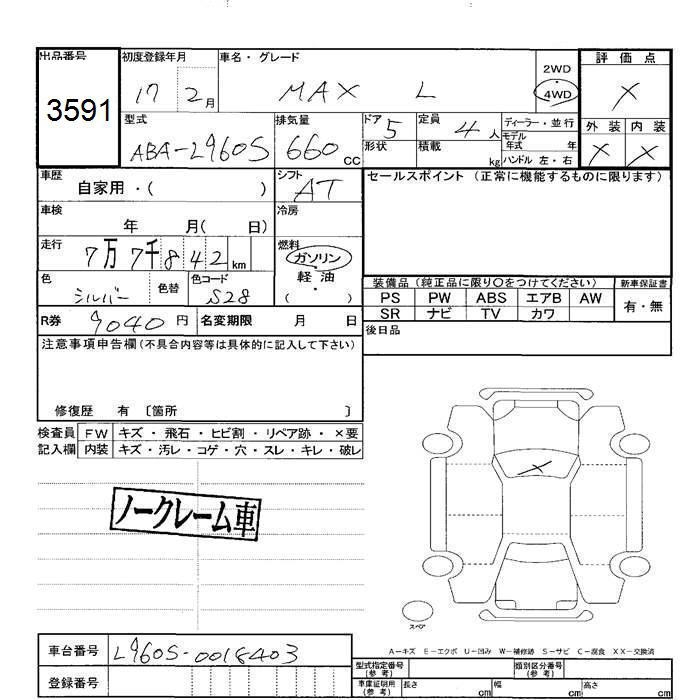 出品番号 初度登録年月 車名・グレード 評価点
3591 17 2月 MAX L 2WD 4WD X
外装 内装
X X
型式 ABA-L960S
排気量 660cc
ドア 5 定員 4人 ディーラー・並行
形状 積載 kg モデル年式 年
ハンドル 左・右
車歴 自家用・( )
シフト AT
セールスポイント (正常に機能するものに限ります)
車検 年 月( 日)
冷房
走行 7万7千842km
燃料 ガソリン
軽油
( )
色 シルバー 色替 色コード S28
装備品 (純正品に限り○をつけてください) 新車保証書
PS PW ABS エアB AW 有・無
SR ナビ TV カワ
R券 9040円 名変期限 月 日
後日品
注意事項申告欄(不具合内容等は具体的に記入して下さい)
修復歴 有 〔箇所 〕
検査員 FW キズ・飛石・ヒビ割・リペア跡・×要
記入欄 内装 キズ・汚レ・コゲ・穴・スレ・キレ・破レ
X
ノークレーム車
スペア
A-キズ E-エクボ U-凹み W-補修跡 S-サビ C-腐食 XX-交換済
車台番号 L960S-0018403
登録番号
型式指定番号(参考) 類別区分番号(参考)
車庫証明用(参考) 長さ cm 幅 cm 高さ cm